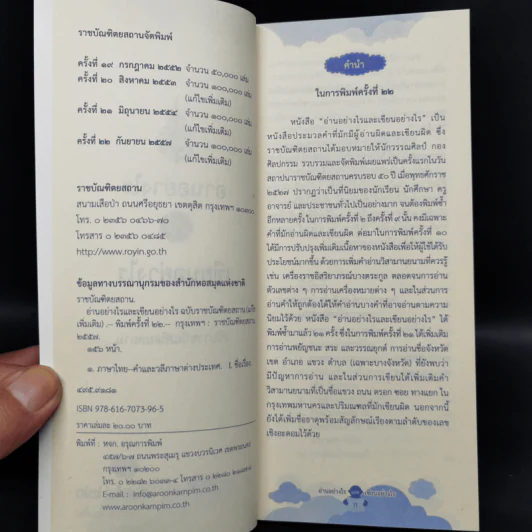 ราชบัณฑิตยสถานจัดพิมพ์
ครั้งที่ ๑๙ กรกฎาคม ๒๕๕๒ จำนวน ๕๐,๐๐๐ เล่ม
ครั้งที่ ๒๐ สิงหาคม ๒๕๕๓ จำนวน ๑๐๐,๐๐๐ เล่ม
(แก้ไขเพิ่มเติม)
ครั้งที่ ๒๑ มิถุนายน ๒๕๕๔ จำนวน ๑๐๐,๐๐๐ เล่ม
(แก้ไขเพิ่มเติม)
ครั้งที่ ๒๒ กันยายน ๒๕๕๗ จำนวน ๑๐๐,๐๐๐ เล่ม
(แก้ไขเพิ่มเติม)
ราชบัณฑิตยสถาน
สนามเสือป่า ถนนศรีอยุธยา เขตดุสิต กรุงเทพฯ ๑๐๓๐๐
โทร. ๐ ๒๓๕๖ ๐๔๖๖-๗๐
โทรสาร ๐ ๒๓๕๖ ๐๔๘๕
http://www.royin.go.th
ข้อมูลทางบรรณานุกรมของสำนักหอสมุดแห่งชาติ
ราชบัณฑิตยสถาน.
อ่านอย่างไรและเขียนอย่างไร ฉบับราชบัณฑิตยสถาน (แก้ไข
เพิ่มเติม) .-- พิมพ์ครั้งที่ ๒๒.-- กรุงเทพฯ : ราชบัณฑิตยสถาน,
๒๕๕๗.
๑๕๖ หน้า.
๑. ภาษาไทย--คำและวลีภาษาต่างประเทศ. I. ชื่อเรื่อง.
๔๙๕.๙๑๘๑
ISBN 978-616-7073-96-5
ราคาเล่มละ ๒๐.๐๐ บาท
พิมพ์ที่ : หจก. อรุณการพิมพ์
๔๕๗/๖-๗ ถนนพระสุเมรุ แขวงบวรนิเวศ เขตพระนคร
กรุงเทพฯ ๑๐๒๐๐
โทร. ๐ ๒๒๘๒ ๖๐๓๓-๔ โทรสาร
E-mail : info@aroonkampim.co.th
www.aroonkampim.co.th
คำนำ
ในการพิมพ์ครั้งที่ ๒๒
หนังสือ “อ่านอย่างไรและเขียนอย่างไร” เป็น
หนังสือประมวลคำที่มักมีผู้อ่านผิดและเขียนผิด ซึ่ง
ราชบัณฑิตยสถานได้มอบหมายให้นักวรรณศิลป์ กอง
ศิลปกรรม รวบรวมและจัดพิมพ์เผยแพร่เป็นครั้งแรกในวัน
สถาปนาราชบัณฑิตยสถานครบรอบ ๕๐ ปี เมื่อพุทธศักราช
๒๕๒๗ ปรากฏว่าเป็นที่นิยมของนักเรียน นักศึกษา ครู
อาจารย์ และประชาชนทั่วไปเป็นอย่างมาก จนต้องพิมพ์ซ้ำ
อีกหลายครั้ง ในการพิมพ์ครั้งที่ ๒ ถึงครั้งที่ ๙ นั้น คงมีเฉพาะ
คำที่มักอ่านผิดและเขียนผิด ต่อมาในการพิมพ์ครั้งที่ ๑๐
ได้มีการปรับปรุงเพิ่มเติมเนื้อหาของหนังสือเพื่อให้ผู้ใช้ได้รับ
ประโยชน์มากขึ้น ด้วยการเพิ่มคำอ่านวิสามานยนามที่ควรรู้
เช่น เครื่องราชอิสริยาภรณ์บางตระกูล ตลอดจนการอ่าน
ตัวเลขต่าง ๆ การอ่านเครื่องหมายต่าง ๆ และในส่วนการ
อ่านคำให้ถูกต้องได้ให้คำอ่านบางคำที่อาจอ่านตามความ
นิยมไว้ด้วย หนังสือ “อ่านอย่างไรและเขียนอย่างไร” ได้
พิมพ์ซ้ำมาแล้ว ๒๑ ครั้ง ซึ่งในการพิมพ์ครั้งที่ ๒๑ ได้เพิ่มเติม
การอ่านพยัญชนะ สระ และวรรณยุกต์ การอ่านชื่อจังหวัด
เขต อำเภอ แขวง ตำบล (เฉพาะบางจังหวัด) ที่ยังพบว่า
มีปัญหาการอ่าน และในส่วนการเขียนได้เพิ่มเติมคำ
วิสามานยนามที่เป็นชื่อแขวง ถนน ตรอก ซอย ทางแยก ใน
กรุงเทพมหานครและปริมณฑลที่มักเขียนผิด นอกจากนี้
ยังได้เพิ่มชื่อธาตุพร้อมสัญลักษณ์เรียงตามลำดับของเลข
เชิงอะตอมไว้ด้วย
อ่านอย่างไร และ เขียนอย่างไร
ก